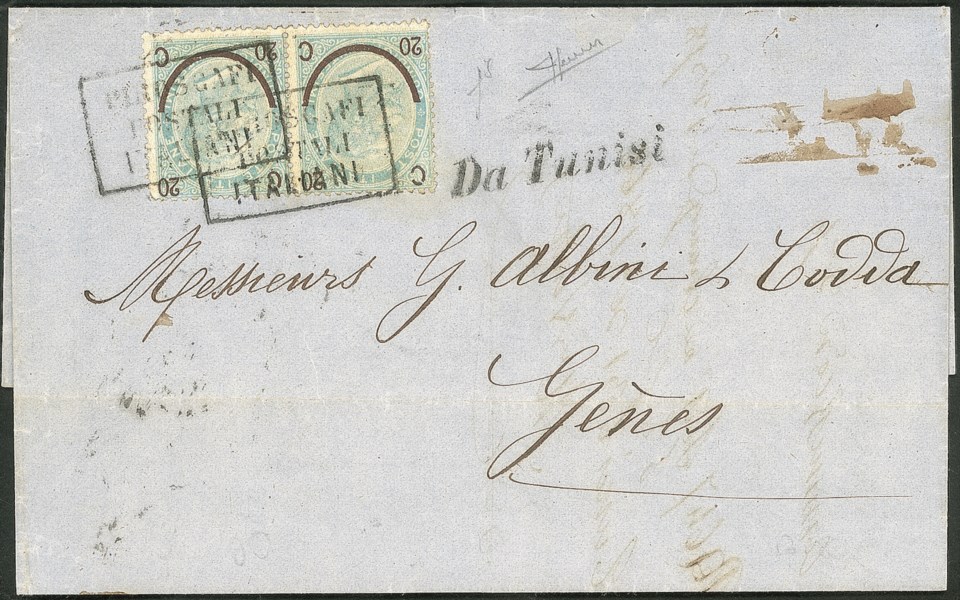 20 C 20 C
PIROSCAFI
POSTALI
ITALIANI
PIROSCAFI
POSTALI
ITALIANI
Da Tunisi
Messieurs G. Albini & Codda
Gênes